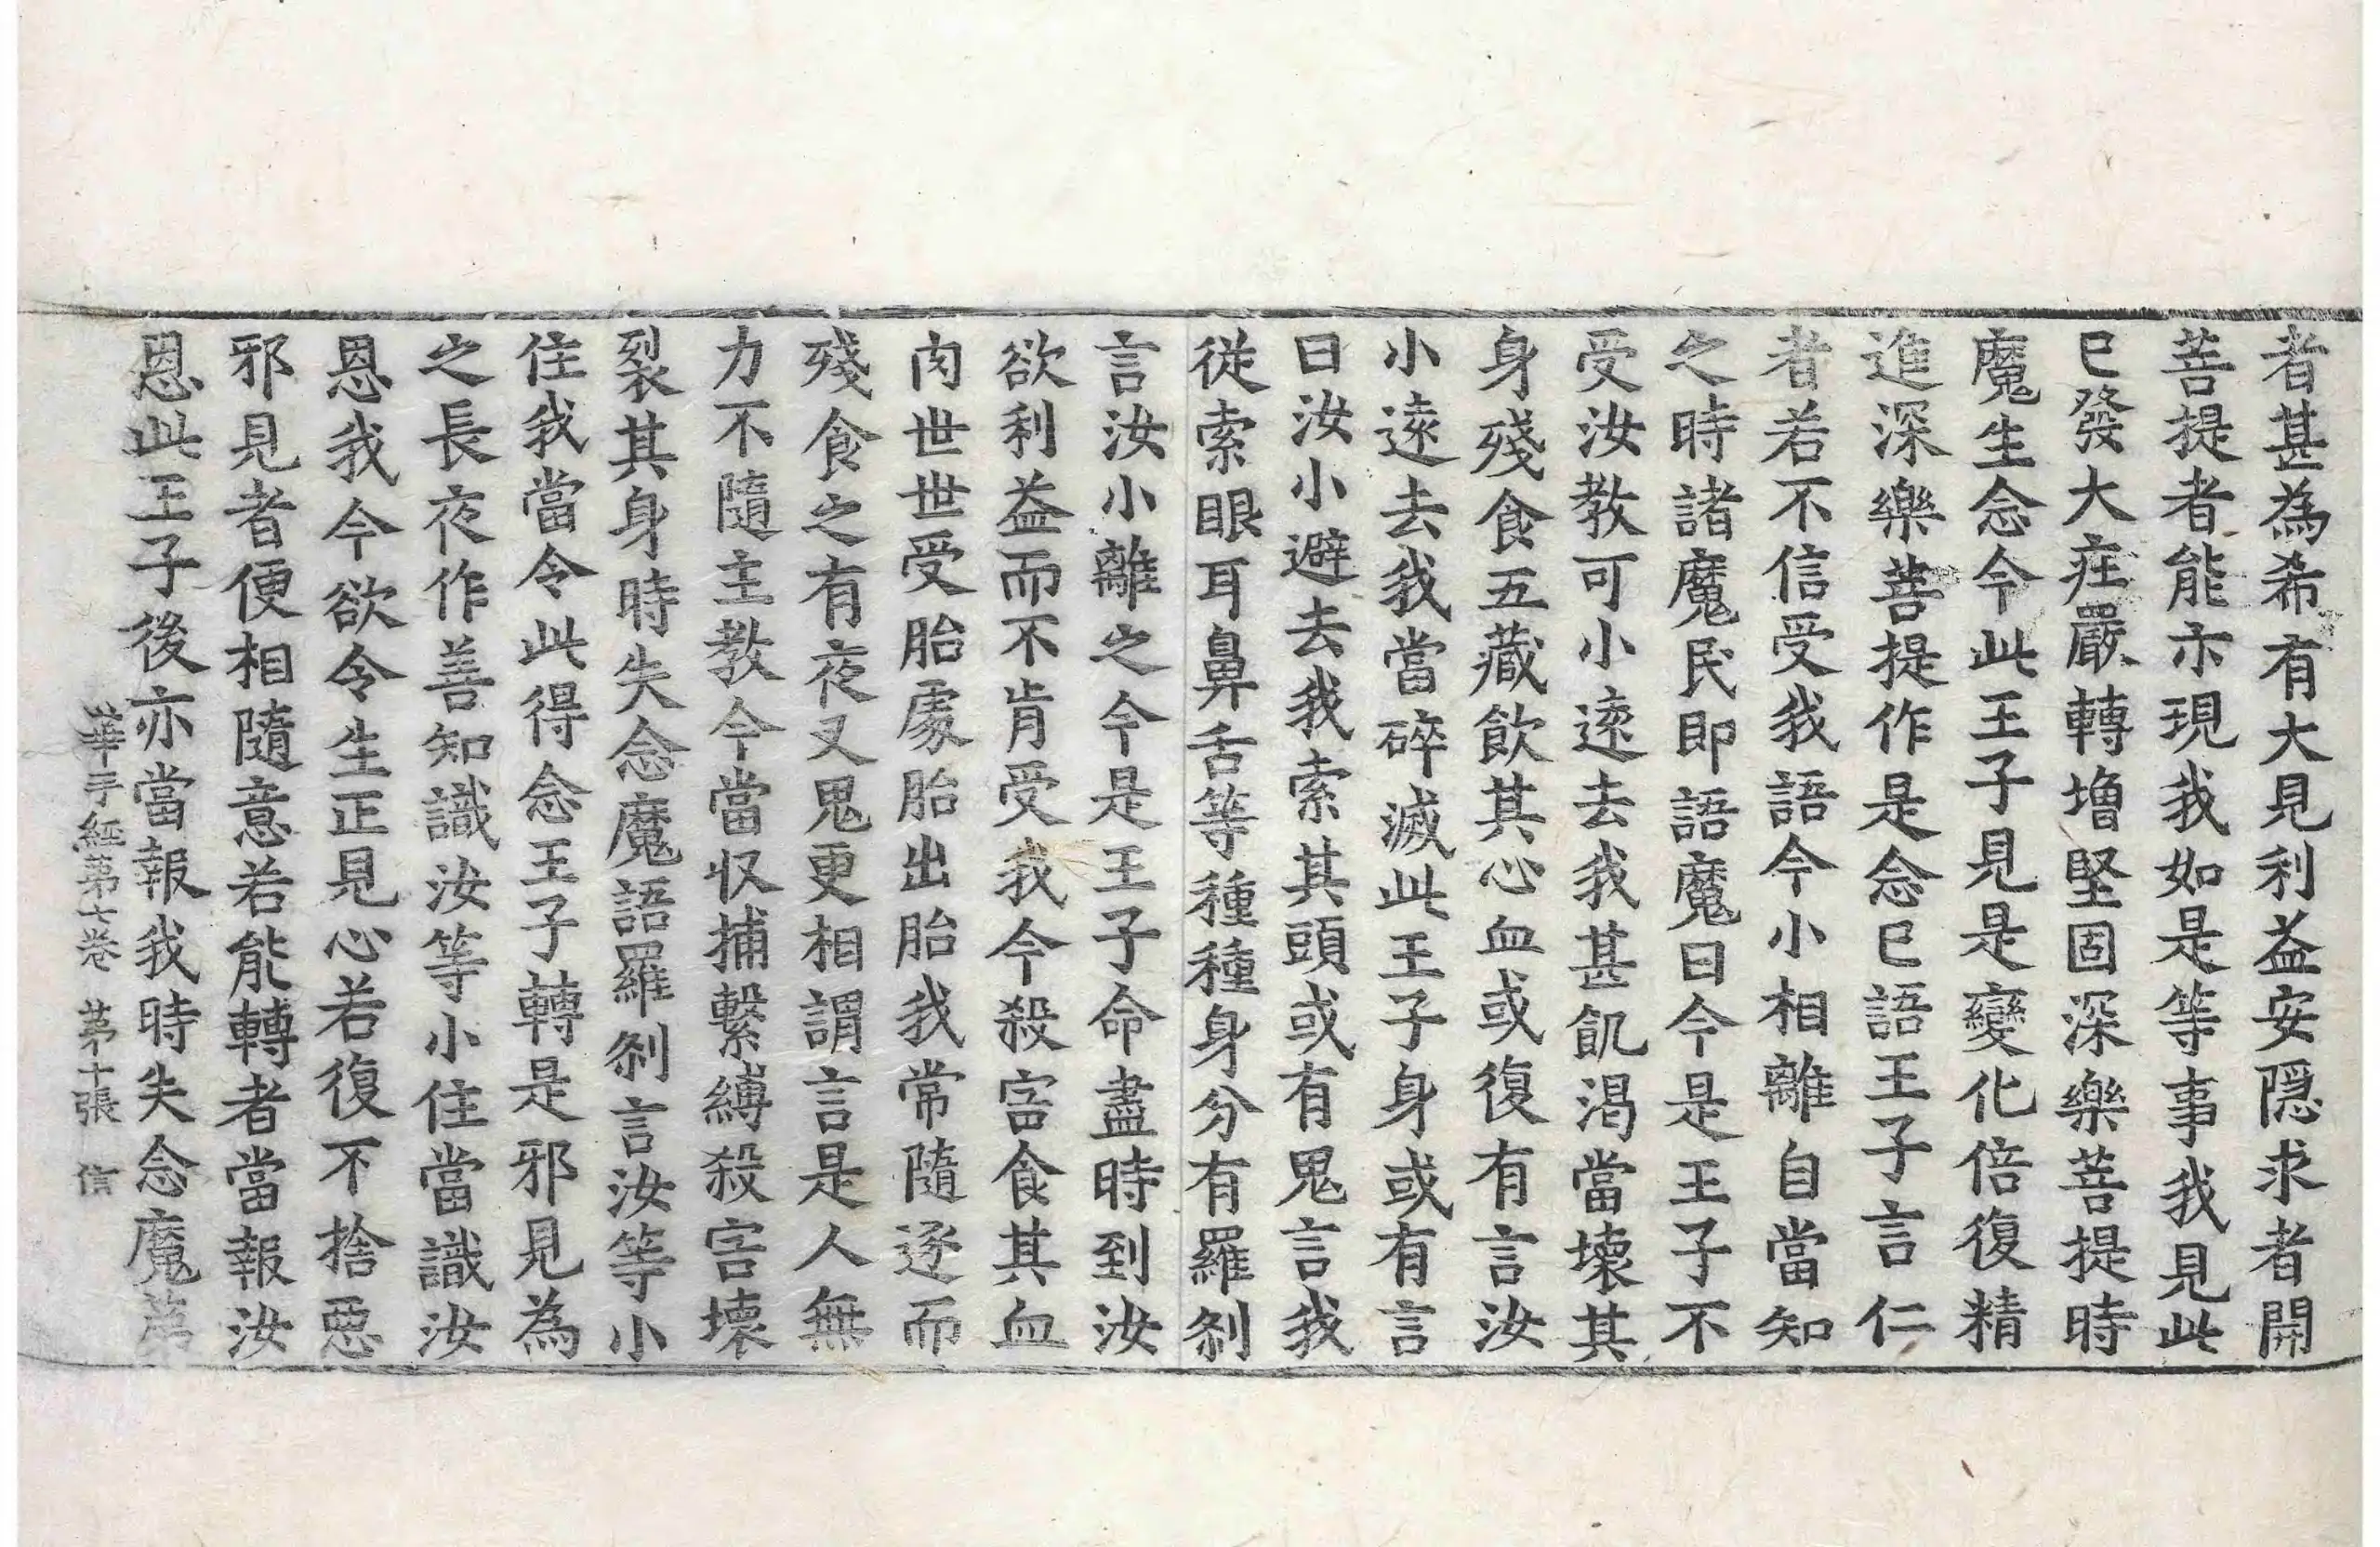 者甚為希有大見利益安隱求者開
菩提者能示現我如是等事我見此
已發大庄嚴轉增堅固深樂菩提時
魔生念今此王子見是變化倍復精
進深樂菩提作是念已語王子言仁
者若不信受我語今小相離自當知
之時諸魔民即語魔曰今是王子不
受汝教可小遠去我甚飢渴當壞其
身殘食五藏飲其心血或復有言汝
小遠去我當碎滅此王子身或有言
曰汝小避去我索其頭或有鬼言我
從索眼耳鼻舌等種種身分有羅剎
言汝小離之今是王子命盡時到汝
欲利益而不肯受我今殺害食其血
肉世世受胎處胎出胎我常隨逐而
殘食之有夜叉鬼更相謂言是人無
力不隨主教今當収捕繫縛殺害壞
裂其身時失念魔語羅剎言汝等小
住我當令此得念王子轉是邪見為
之長夜作善知識汝等小住當識汝
恩我今欲令生正見心若復不捨惡
邪見者便相隨意若能轉者當報汝
恩此王子後亦當報我時失念魔第
華手經第七卷 第十張 信